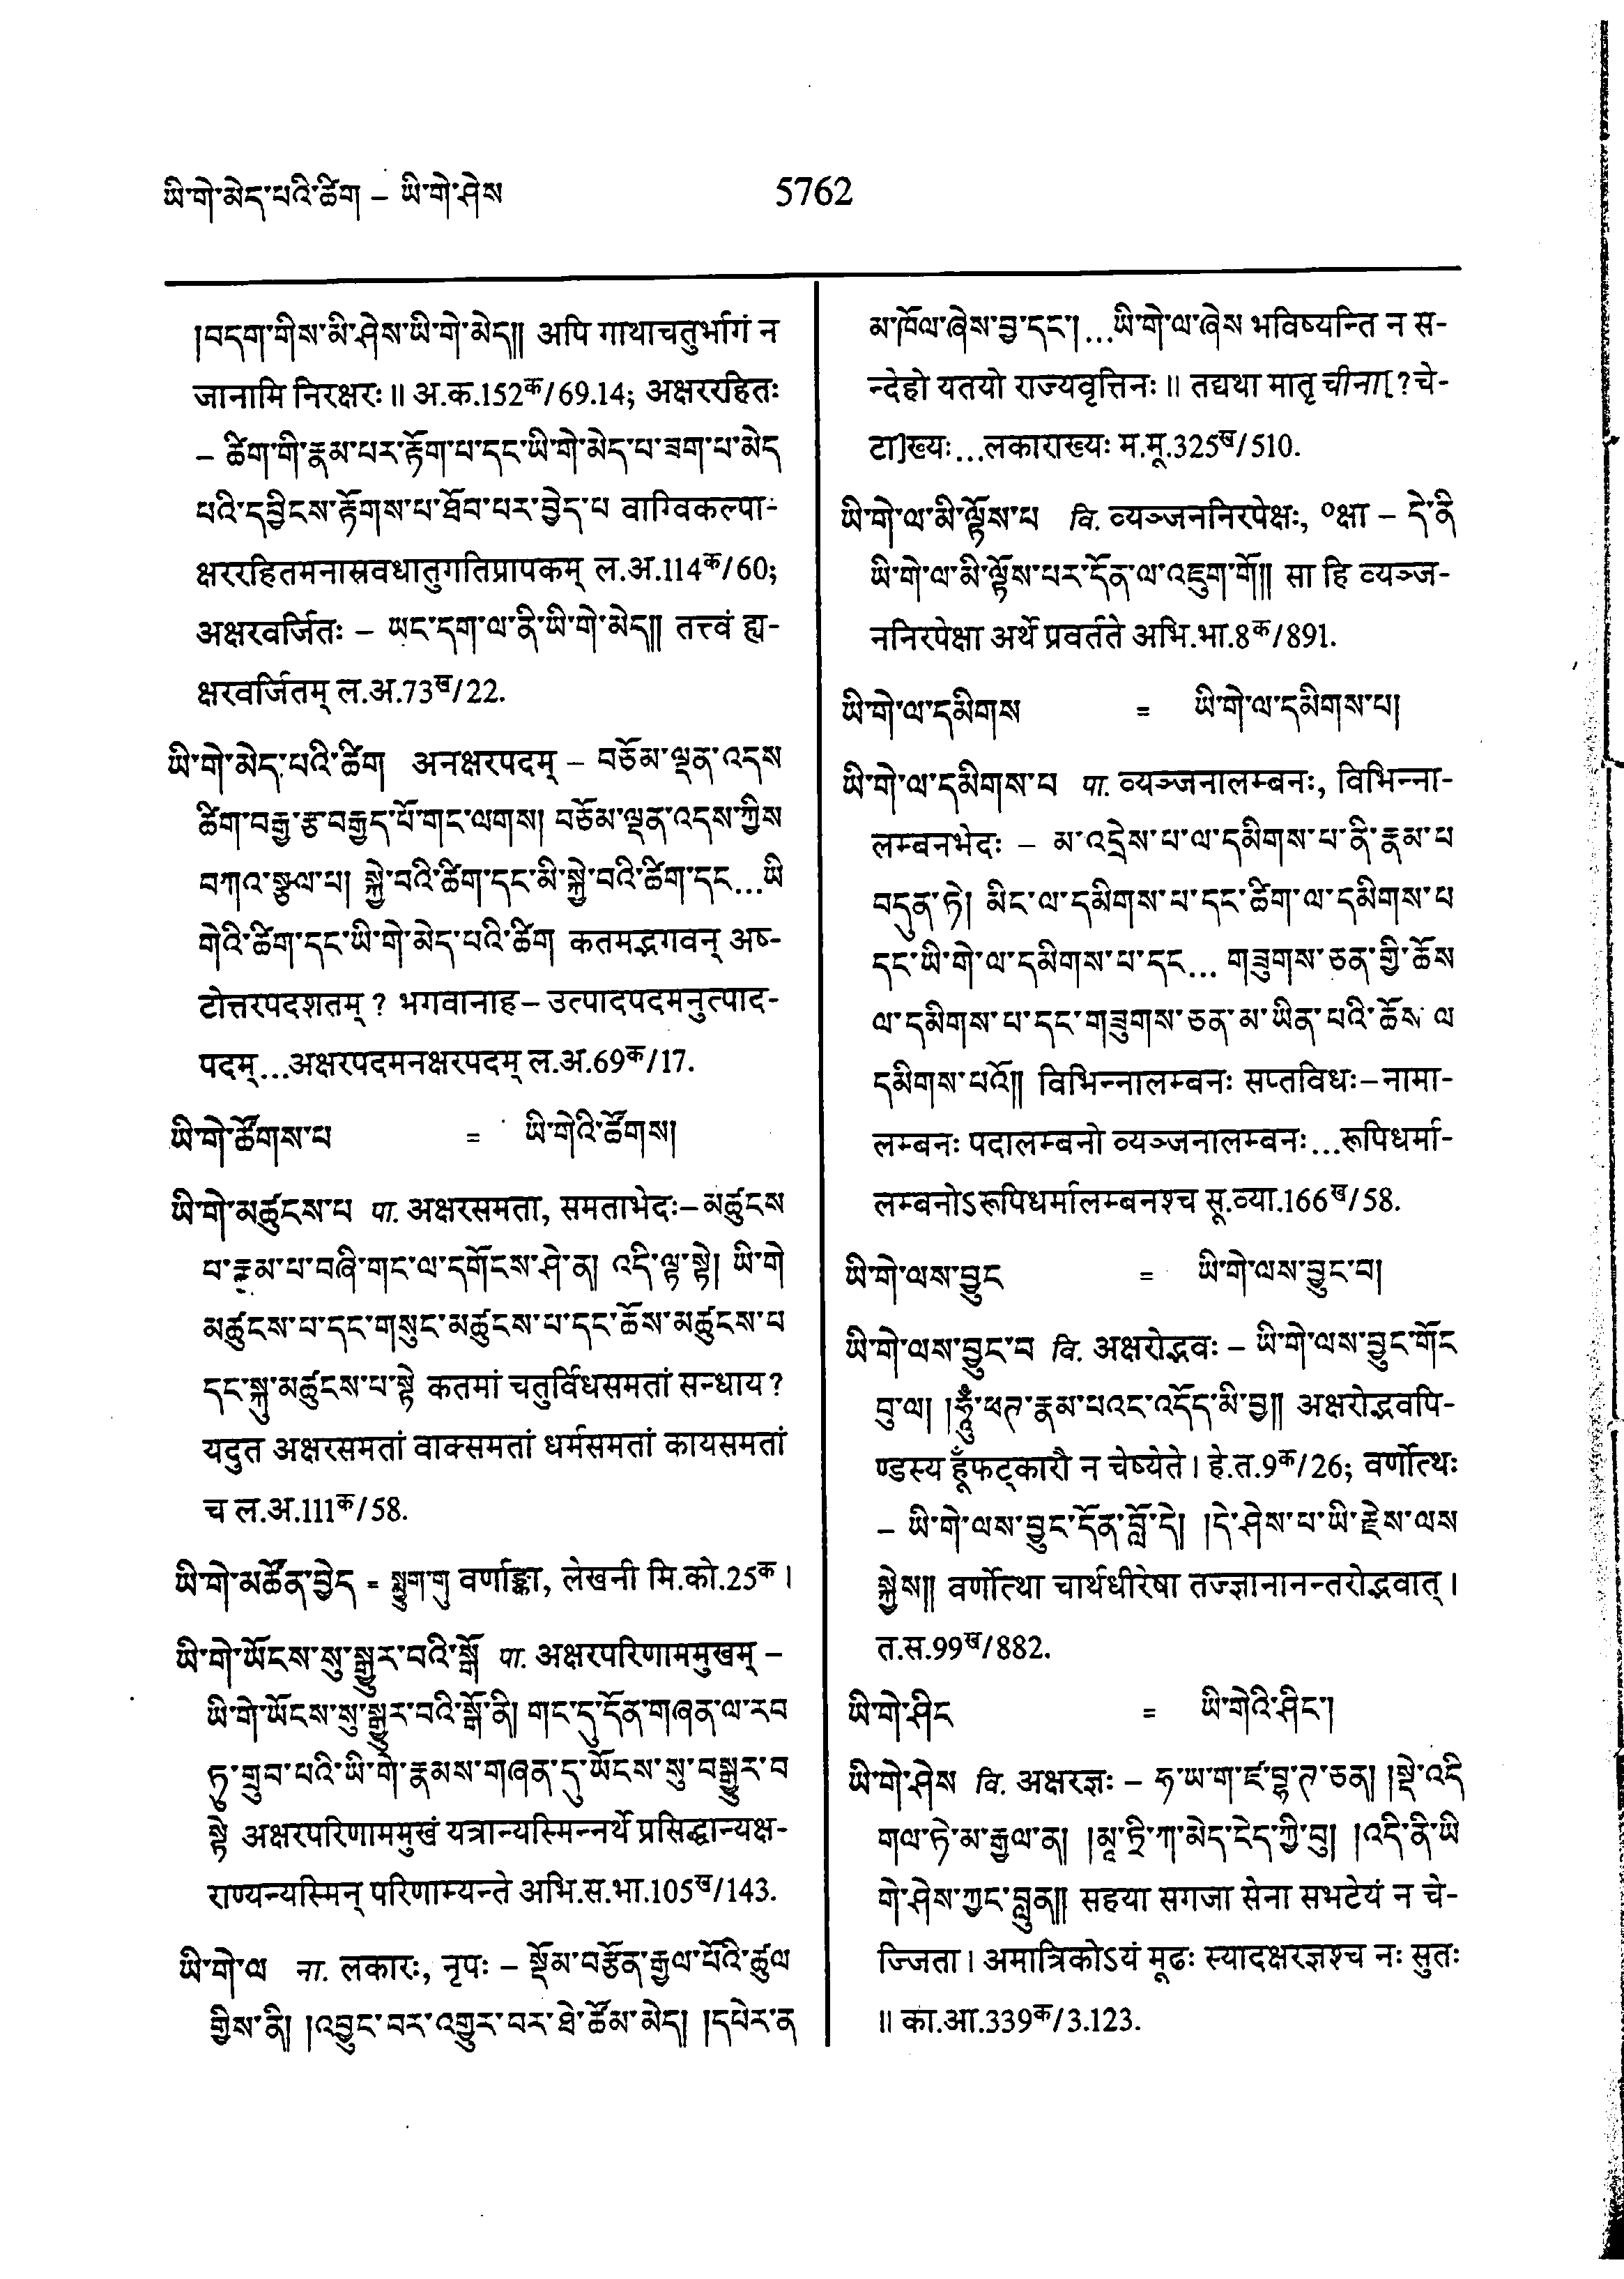 ཡི་གེ་མེད་པའི་ཚིག – ཡི་གེ་ཤེས
5762
།བདག་གིས་མི་ཤེས་ཡི་གེ་མེད།། अपि गाथाचतुर्भागं न
जानामि निरक्षरः ॥ अ.क.152क/69.14; अक्षररहितः
– ཚིག་གི་རྣམ་པར་རྟོག་པ་དང་ཡི་གེ་མེད་པ་ཟག་པ་མེད
པའི་དབྱིངས་རྟོགས་པ་ཐོབ་པར་བྱེད་པ वाग्विकल्पा-
क्षररहितमनास्रवधातुगतिप्रापकम् ल.अ.114क/60;
अक्षरवर्जितः – ཡང་དག་ལ་ནི་ཡི་གེ་མེད།། तत्त्वं ह्य-
क्षरवर्जितम् ल.अ.73ख/22.
ཡི་གེ་མེད་པའི་ཚིག अनक्षरपदम् – བཅོམ་ལྡན་འདས
ཚིག་བརྒྱ་རྩ་བརྒྱད་པོ་གང་ལགས། བཅོམ་ལྡན་འདས་ཀྱིས
བཀའ་སྩལ་པ། སྐྱེ་བའི་ཚིག་དང་མི་སྐྱེ་བའི་ཚིག་དང...ཡི
གེའི་ཚིག་དང་ཡི་གེ་མེད་པའི་ཚིག कतमद्भगवन् अष्-
टोत्तरपदशतम् ? भगवानाह – उत्पादपदमनुत्पाद-
पदम्...अक्षरपदमनक्षरपदम् ल.अ.69क/17.
ཡི་གེ་ཚོགས་པ = ཡི་གེའི་ཚོགས།
ཡི་གེ་མཚུངས་པ पा. अक्षरसमता, समताभेदः – མཚུངས
པ་རྣམ་པ་བཞི་གང་ལ་དགོངས་ཤེ་ན། འདི་ལྟ་སྟེ། ཡི་གེ
མཚུངས་པ་དང་གསུང་མཚུངས་པ་དང་ཆོས་མཚུངས་པ
དང་སྐུ་མཚུངས་པ་སྟེ कतमां चतुर्विधसमतां सन्धाय ?
यदुत अक्षरसमतां वाक्समतां धर्मसमतां कायसमतां
च ल.अ.111क/58.
ཡི་གེ་མཚོན་བྱེད = སྨྱུག་གུ वर्णाङ्का, लेखनी मि.को.25क ।
ཡི་གེ་ཡོངས་སུ་སྒྱུར་བའི་སྒོ पा. अक्षरपरिणाममुखम् –
ཡི་གེ་ཡོངས་སུ་སྒྱུར་བའི་སྒོ་ནི། གང་དུ་དོན་གཞན་ལ་རབ
ཏུ་གྲུབ་པའི་ཡི་གེ་རྣམས་གཞན་དུ་ཡོངས་སུ་བསྒྱུར་བ
སྟེ अक्षरपरिणाममुखं यत्रान्यस्मिन्नर्थे प्रसिद्धान्यक्ष-
राण्यन्यस्मिन् परिणाम्यन्ते अभि.स.भा.105ख/143.
ཡི་གེ་ལ ना. लकारः, नृपः – སྡོམ་བརྩོན་རྒྱལ་པོའི་ཚུལ
གྱིས་ནི། །འབྱུང་བར་འགྱུར་བར་ཐེ་ཚོམ་མེད། །དཔེར་ན
མ་ཁོལ་ཞེས་བྱ་དང་།...ཡི་གེ་ལ་ཞེས भविष्यन्ति न स-
न्देहो यतयो राज्यवृत्तिनः ॥ तद्यथा मातृ चीना[?चे-
टा]ख्यः...लकाराख्यः म.मू.325ख/510.
ཡི་གེ་ལ་མི་ལྟོས་པ वि. व्यञ्जननिरपेक्षः, ०क्षा – དེ་ནི
ཡི་གེ་ལ་མི་ལྟོས་པར་དོན་ལ་འཇུག་གོ།། सा हि व्यञ्ज-
ननिरपेक्षा अर्थे प्रवर्तते अभि.भा.8क/891.
ཡི་གེ་ལ་དམིགས = ཡི་གེ་ལ་དམིགས་པ།
ཡི་གེ་ལ་དམིགས་པ पा. व्यञ्जनालम्बनः, विभिन्ना-
लम्बनभेदः – མ་འདྲེས་པ་ལ་དམིགས་པ་ནི་རྣམ་པ
བདུན་ཏེ། མིང་ལ་དམིགས་པ་དང་ཚིག་ལ་དམིགས་པ
དང་ཡི་གེ་ལ་དམིགས་པ་དང... གཟུགས་ཅན་གྱི་ཆོས
ལ་དམིགས་པ་དང་གཟུགས་ཅན་མ་ཡིན་པའི་ཆོས་ལ
དམིགས་པའོ།། विभिन्नालम्बनः सप्तविधः – नामा-
लम्बनः पदालम्बनो व्यञ्जनालम्बनः...रूपिधर्मा-
लम्बनोऽरूपिधर्मालम्बनश्च सू.व्या.166ख/58.
ཡི་གེ་ལས་བྱུང = ཡི་གེ་ལས་བྱུང་བ།
ཡི་གེ་ལས་བྱུང་བ वि. अक्षरोद्भवः – ཡི་གེ་ལས་བྱུང་གོང
བུ་ལ། །ཧཱུྃ་ཕཊ་རྣམ་པའང་འདོད་མི་བྱ།། अक्षरोद्भवपि-
ण्डस्य हूँफट्कारौ न चेष्येते । हे.त.9क/26; वर्णोत्थः
– ཡི་གེ་ལས་བྱུང་དོན་བློ་དེ། །དེ་ཤེས་པ་ཡི་རྗེས་ལས
སྐྱེས།། वर्णोत्था चार्थधीरेषा तज्ज्ञानानन्तरोद्भवात् ।
त.स.99ख/882.
ཡི་གེ་ཤིང = ཡི་གེའི་ཤིང་།
ཡི་གེ་ཤེས वि. अक्षरज्ञः – ཧ་ཡ་ག་ཛ་བྷ་ཊ་ཅན། །སྡེ་འདི
གལ་ཏེ་མ་རྒྱལ་ན། །མཱ་ཏྲི་ཀ་མེད་ངེད་ཀྱི་བུ། །འདི་ནི་ཡི
གེ་ཤེས་ཀྱང་བླུན།། सहया सगजा सेना सभटेयं न चे-
ज्जिता । अमात्रिकोऽयं मूढः स्यादक्षरज्ञश्च नः सुतः
॥ का.आ.339क/3.123.